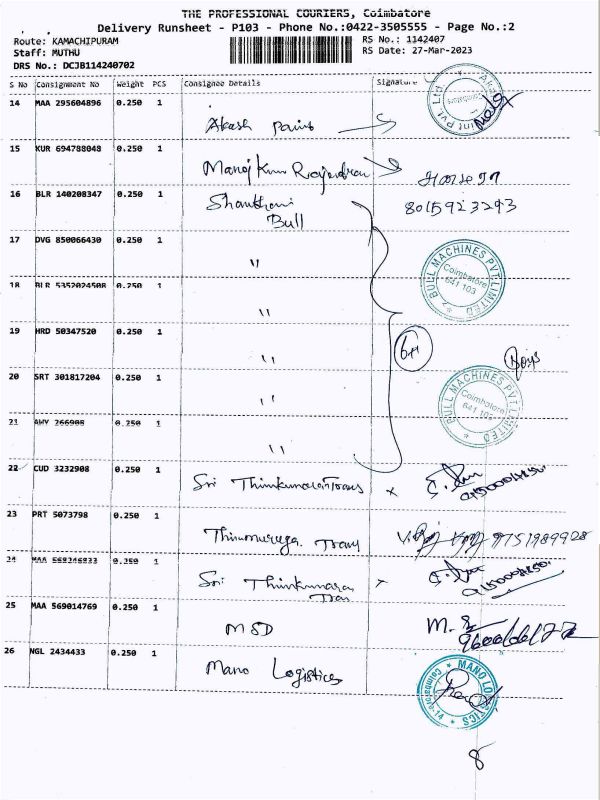 THE PROFESSIONAL COURIERS, Coimbatore
Delivery Runsheet - P103 - Phone No.:0422-3505555 - Page No.:2
Route: KAMACHIPURAM
RS No.: 1142407
Staff: MUTHU
RS Date: 27-Mar-2023
DRS No.: DCJB114240702
S No Consignment No Weight PCS Consignee Details Signature
14 MAA 295604896 0.250 1
Akash Paints
15 KUR 694788048 0.250 1
Manoj Kum Rajendran
16 BLR 140208347 0.250 1 Shanthoni 8015923293
Bull
17 DVG 850066430 0.250 1
"
BULL MACHINES PVT.LIMITED
Coimbatore
641 103
18 BLR 5352024508 0.250 1
"
19 HRD 50347520 0.250 1
"
20 SRT 301817204 0.250 1
"
BULL MACHINES PVT.LIMITED
Coimbatore
641 103
21 AWV 266908 0.250 1
"
22 CUD 3232908 0.250 1
Sri
23 PRT 5073798 0.250 1
9751989928
24 MAA 0.250 1
Sri
25 MAA 569014769 0.250 1
MSD
26 NGL 2434433 0.250 1
Mano Logistics
MANO LOGISTICS
Coimbatore-14
8